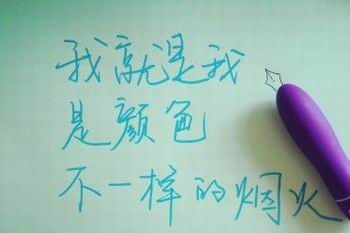 我就是我
是颜色
不一样的烟火